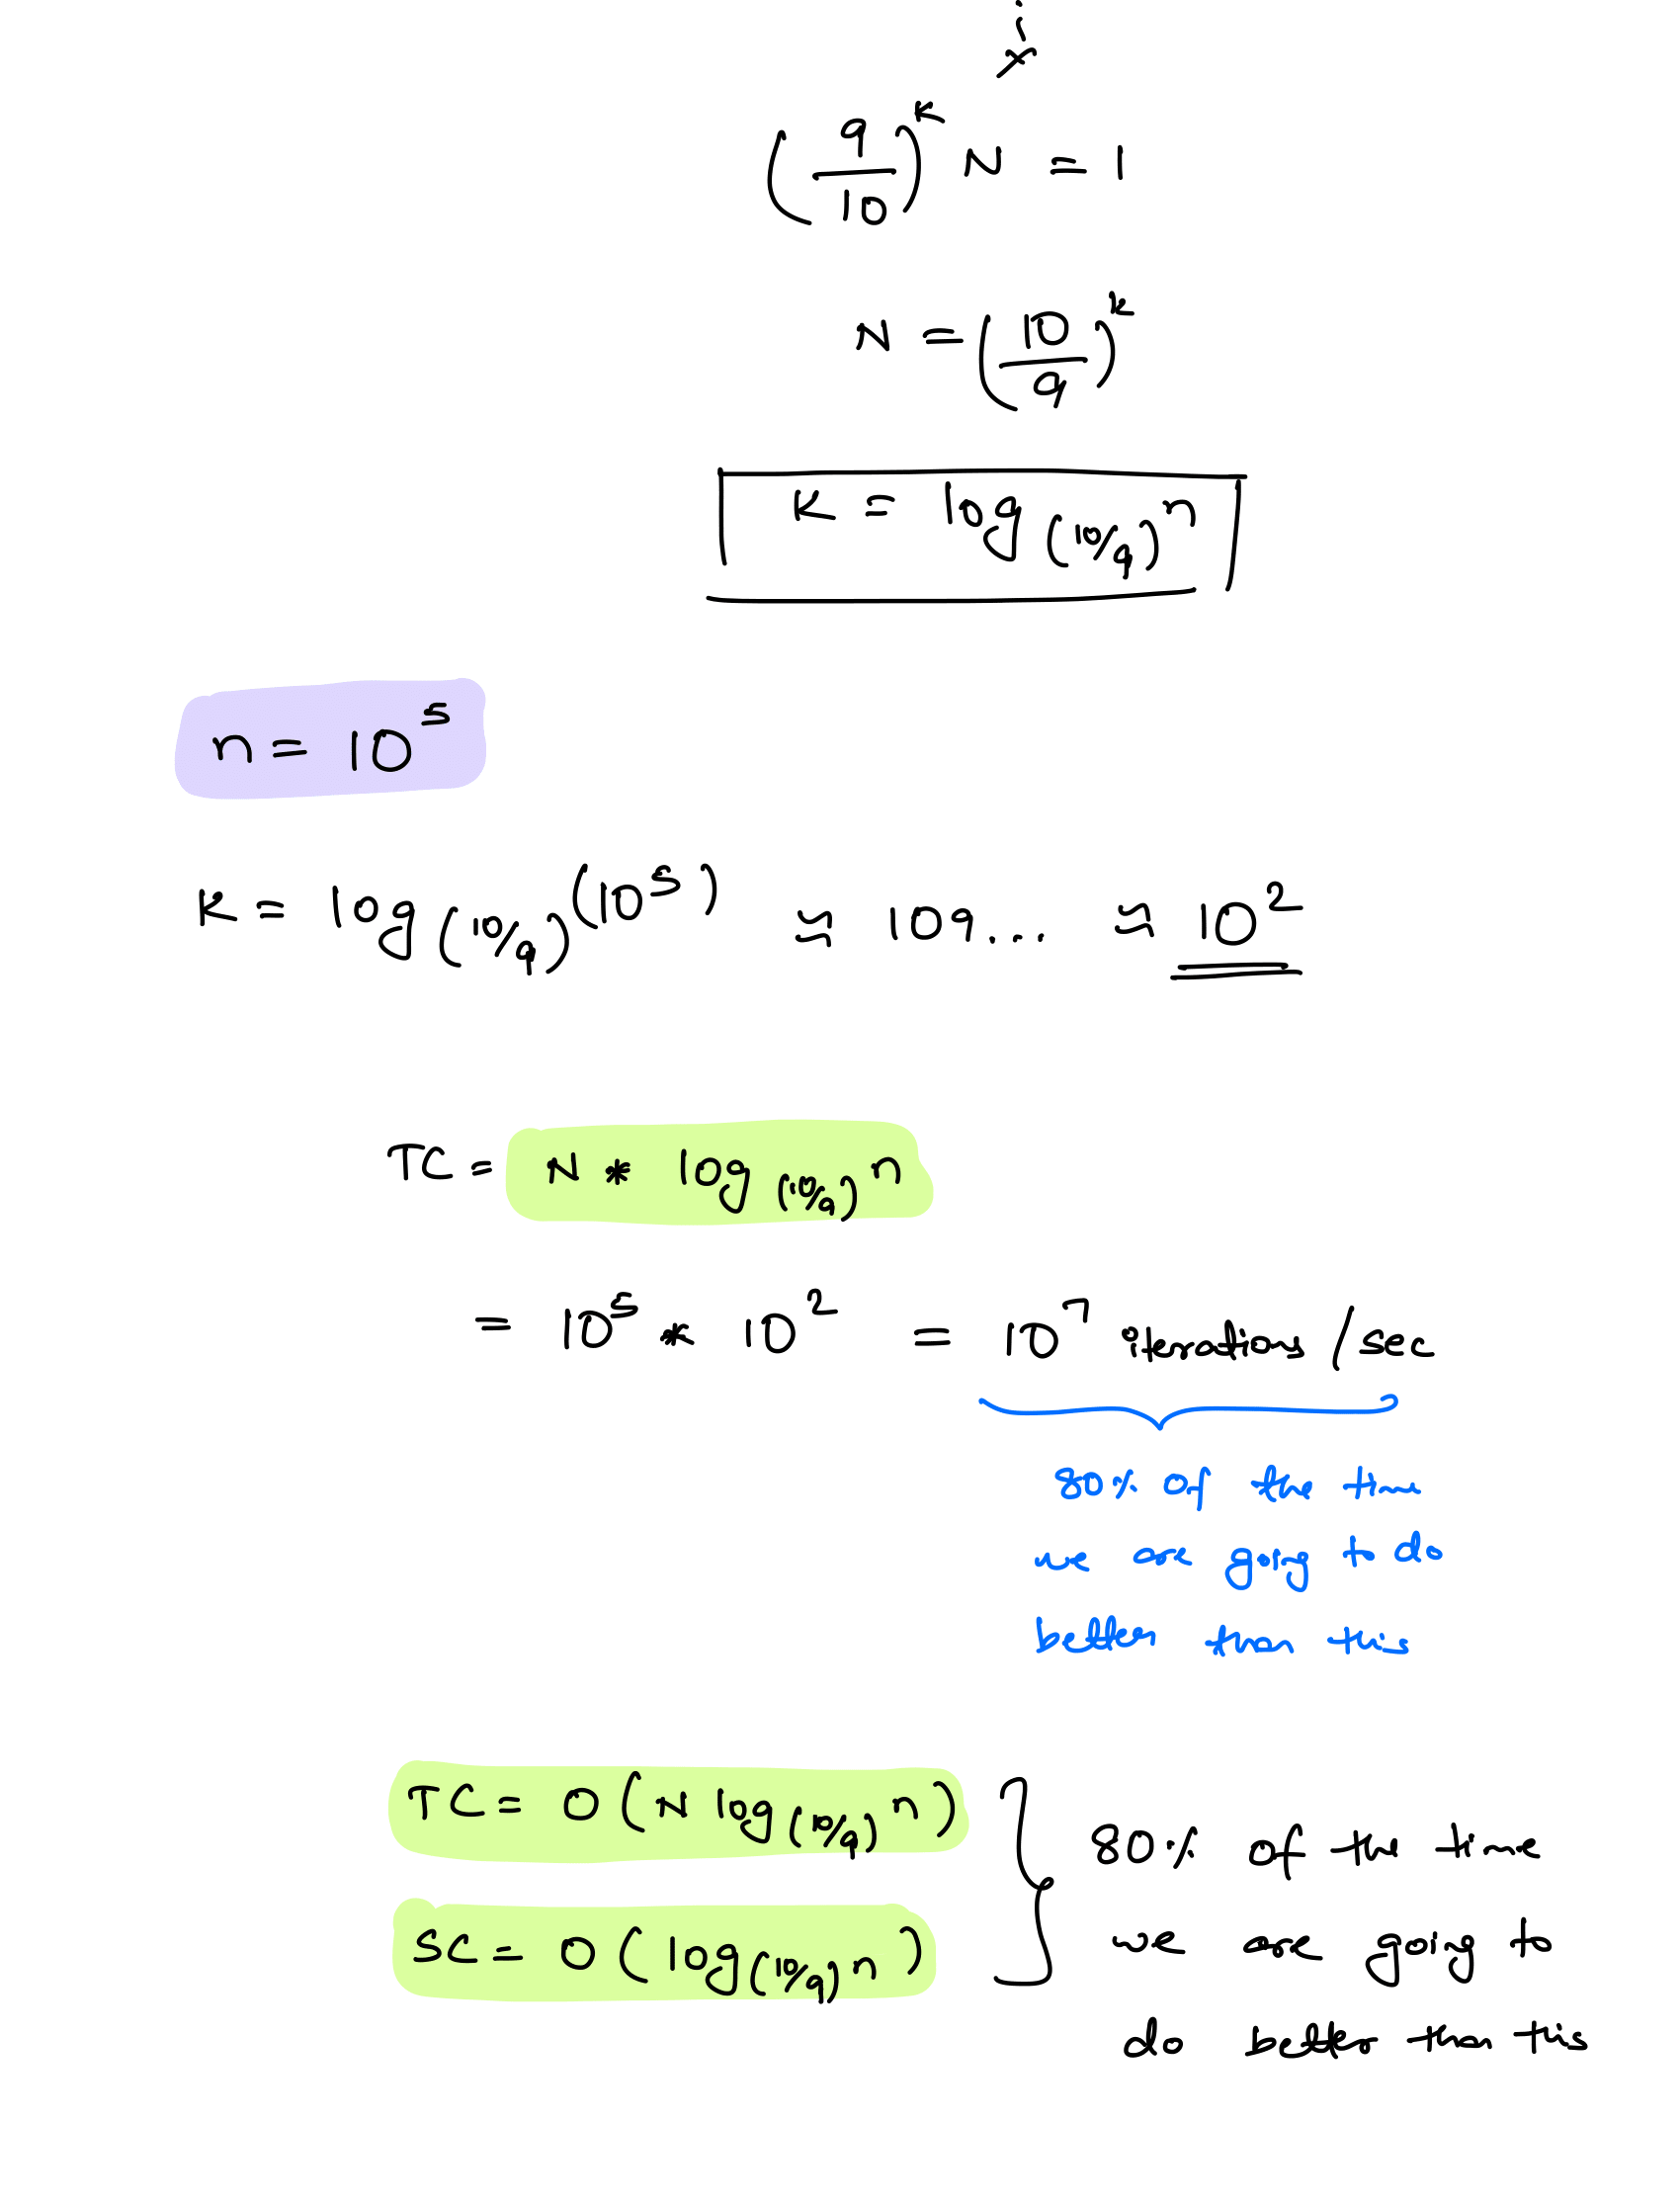 (9/10)^K N = 1
N = (10/9)^k
K = log_(10/9) n
n = 10^5
K = log_(10/9) (10^5) ≈ 109... ≈ 10^2
TC = N * log_(10/9) n
= 10^5 * 10^2 = 10^7 iterations / sec
80% of the time
we are going to do
better than this
TC = O(N log_(10/9) n)
SC = O(log_(10/9) n)
80% of the time
we are going to
do better than this